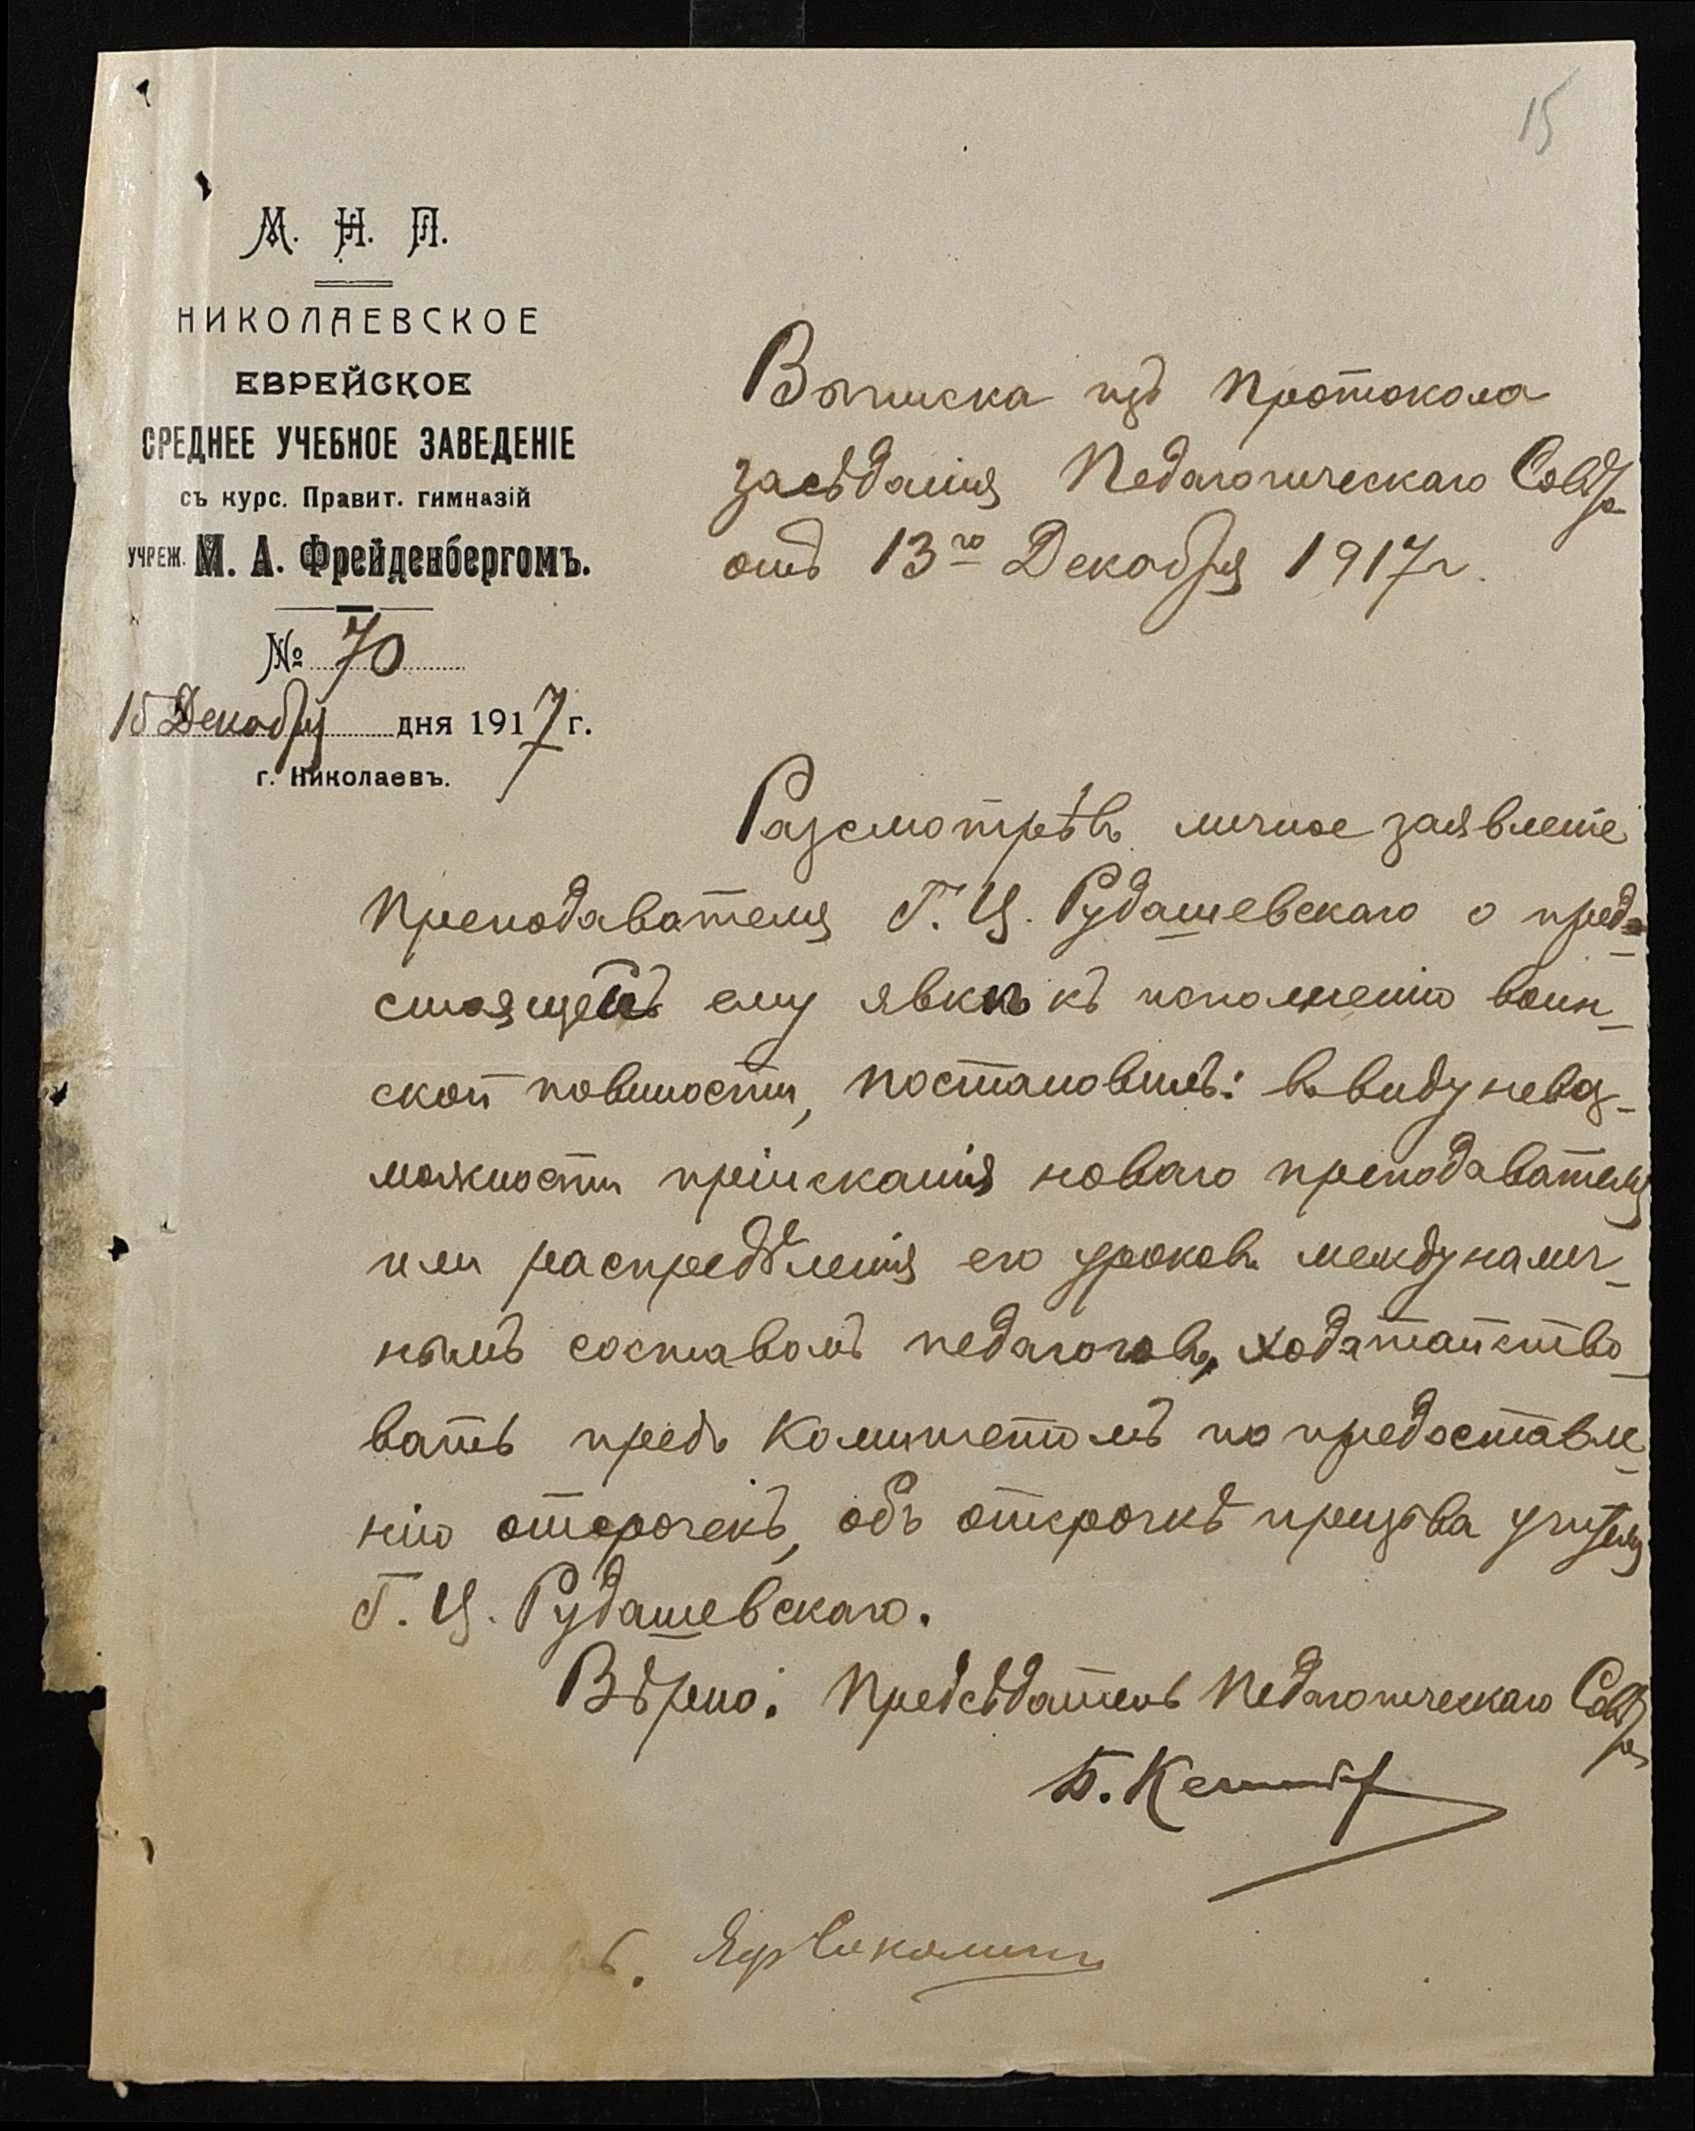 15
М. Н. П.
НИКОЛАЕВСКОЕ
ЕВРЕЙСКОЕ
СРЕДНЕЕ УЧЕБНОЕ ЗАВЕДЕНІЕ
съ курс. Правит. гимназій
УЧРЕЖ. М. А. Фрейденбергомъ.
№ 70
15 Декабря дня 1917 г.
г. Николаевъ.
Выписка изъ протокола
засѣданія Педагогическаго Совѣта
отъ 13го Декабря 1917 г.
Разсмотрѣвъ личное заявленіе
преподавателя Г. Ц. Рудашевскаго о пред-
стоящей ему явкѣ къ исполненію воин-
ской повинности, постановилъ: въ виду невоз-
можности пріисканія новаго преподавателя
или распредѣленія его уроковъ между налич-
нымъ составомъ педагоговъ, ходатайство-
вать предъ Комитетомъ по предоставле-
нію отсрочекъ, объ отсрочкѣ призыва учителя
Г. Ц. Рудашевскаго.
Вѣрно: Предсѣдатель Педагогическаго Совѣта